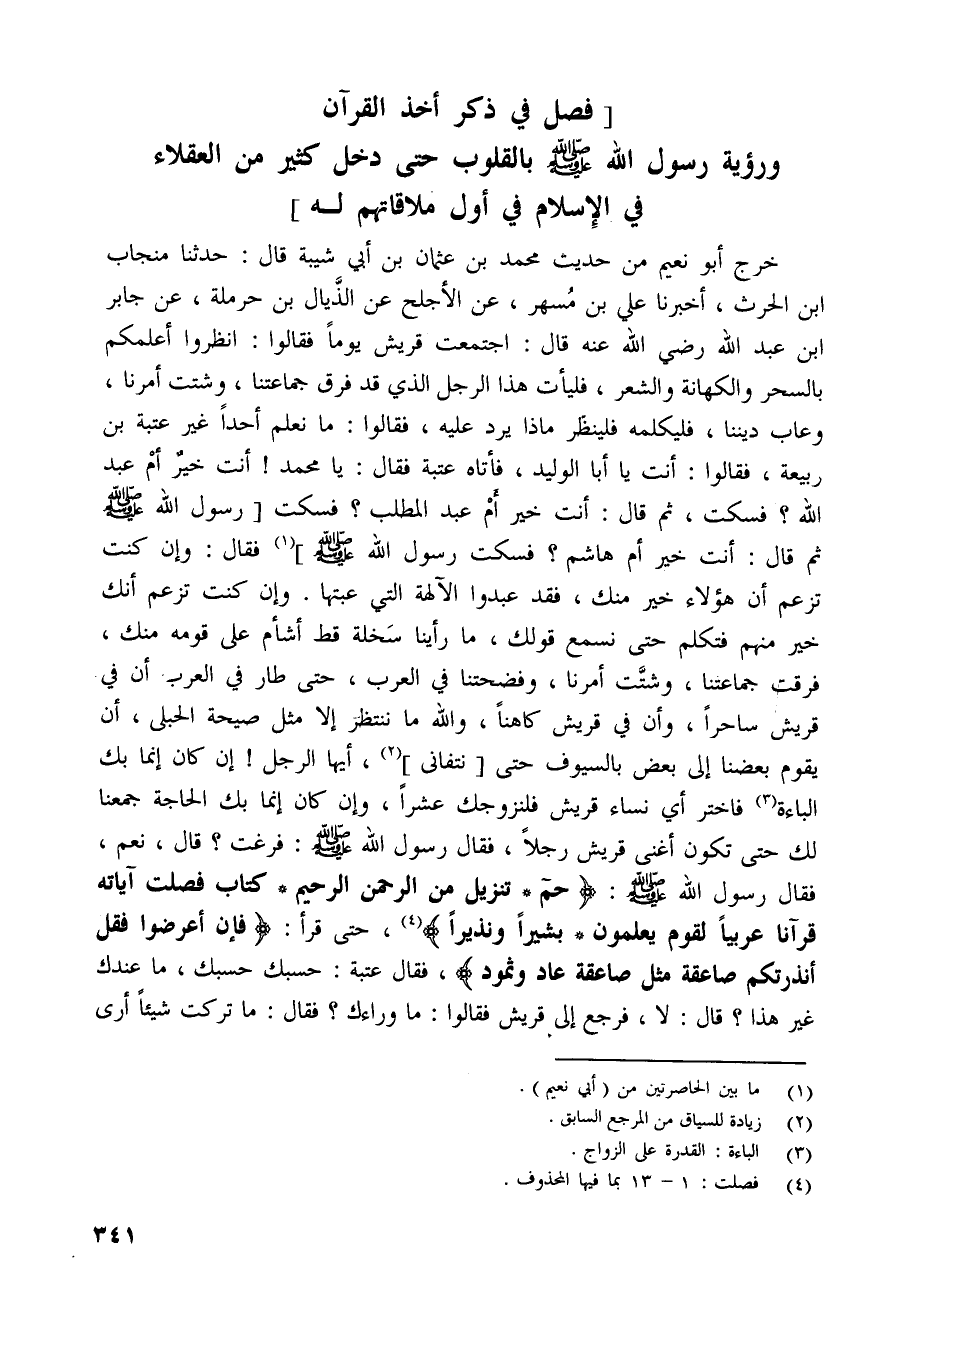 [ فصل في ذكر أخذ القرآن
ورؤية رسول الله ﷺ بالقلوب حتى دخل كثير من العقلاء
في الإسلام في أول ملاقاتهم لـه ]
خرج أبو نعيم من حديث محمد بن عثمان بن أبي شيبة قال : حدثنا منجاب
ابن الحرث ، أخبرنا علي بن مُسهر ، عن الأجلح عن الذَّيال بن حرملة ، عن جابر
ابن عبد الله رضي الله عنه قال : اجتمعت قريش يوماً فقالوا : انظروا أعلمكم
بالسحر والكهانة والشعر ، فليأت هذا الرجل الذي قد فرق جماعتنا ، وشتت أمرنا ،
وعاب ديننا ، فليكلمه فلينظر ماذا يرد عليه ، فقالوا : ما نعلم أحداً غير عتبة بن
ربيعة ، فقالوا : أنت يا أبا الوليد ، فأتاه عتبة فقال : يا محمد ! أنت خيرٌ أمْ عبد
الله ؟ فسكت ، ثم قال : أنت خير أمْ عبد المطلب ؟ فسكت [ رسول الله ﷺ
ثم قال : أنت خير أم هاشم ؟ فسكت رسول الله ﷺ ](١) فقال : وإن كنت
تزعم أن هؤلاء خير منك ، فقد عبدوا الآلهة التي عبتها . وإن كنت تزعم أنك
خير منهم فتكلم حتى نسمع قولك ، ما رأينا سَخلة قط أشأم على قومه منك ،
فرقت جماعتنا ، وشتَّت أمرنا ، وفضحتنا في العرب ، حتى طار في العرب أن في
قريش ساحراً ، وأن في قريش كاهناً ، والله ما ننتظر إلا مثل صيحة الحبلى ، أن
يقوم بعضنا إلى بعض بالسيوف حتى [ نتفانى ](٢) ، أيها الرجل ! إن كان إنما بك
الباءة(٣) فاختر أي نساء قريش فلنزوجك عشراً ، وإن كان إنما بك الحاجة جمعنا
لك حتى تكون أغنى قريش رجلاً ، فقال رسول الله ﷺ : فرغت ؟ قال ، نعم ،
فقال رسول الله ﷺ : ﴿ حمٓ * تنزيل من الرحمن الرحيم * كتاب فصلت آياته
قرآنا عربياً لقوم يعلمون * بشيراً ونذيراً ﴾(٤) ، حتى قرأ : ﴿ فإن أعرضوا فقل
أنذرتكم صاعقة مثل صاعقة عاد وثمود ﴾ ، فقال عتبة : حسبك حسبك ، ما عندك
غير هذا ؟ قال : لا ، فرجع إلى قريش فقالوا : ما وراءك ؟ فقال : ما تركت شيئاً أرى
(١) ما بين الحاصرتين من ( أبي نعيم ) .
(٢) زيادة للسياق من المرجع السابق .
(٣) الباءة : القدرة على الزواج .
(٤) فصلت : ١ – ١٣ بما فيها المحذوف .
٣٤١